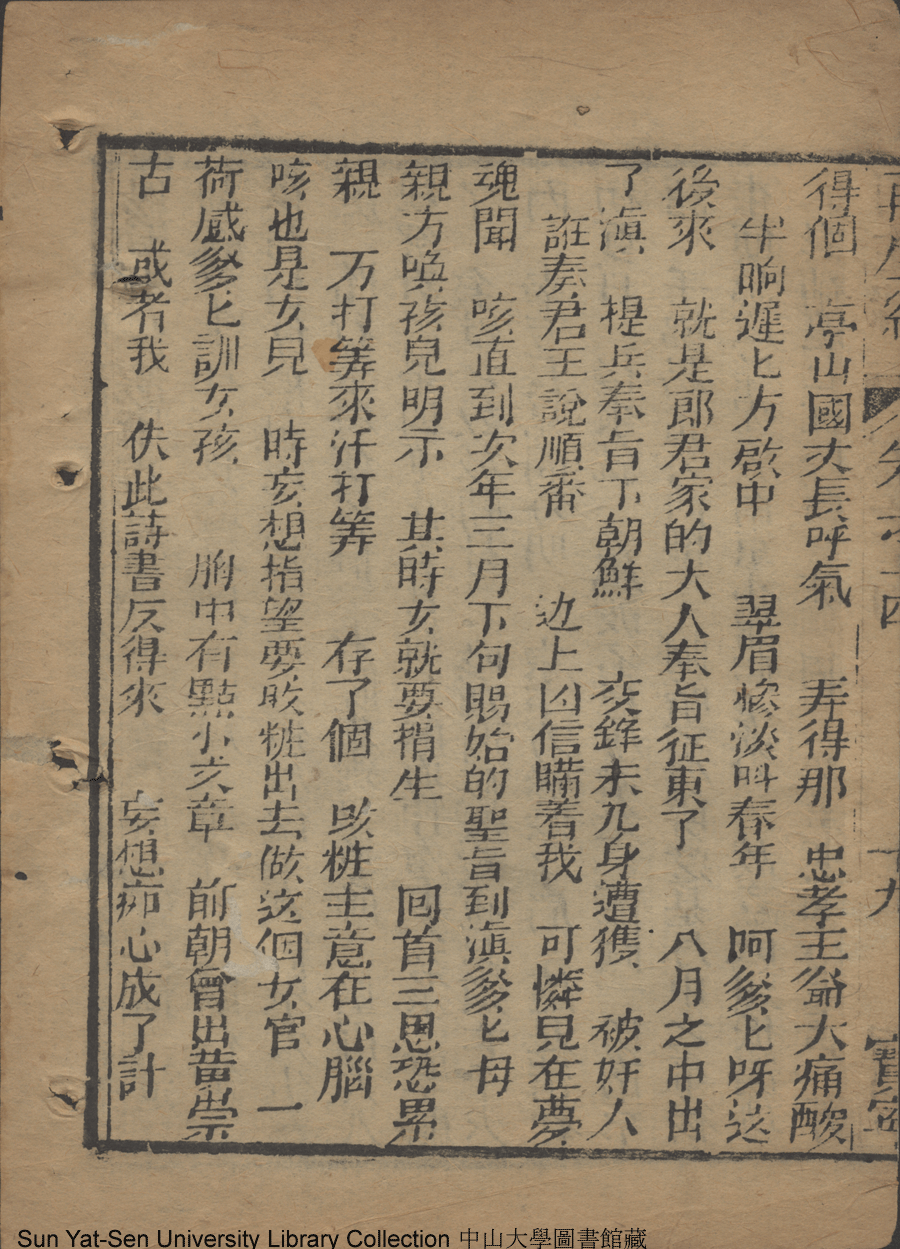 得個　亭山國丈長呼氣　弄得那　忠孝王爺大痛酸
半晌遲匕方啟口　翠眉慘淡叫春年　阿爹匕呀这
後來　就是郎君家的大人奉旨征東了　八月之中出
了滇　提兵奉旨下朝鮮　交鋒未几身遭獲　被奸人
誑奏君王說順番　边上凶信瞞着我　可憐兒在夢
魂聞　咳直到次年三月下旬賜始的聖旨到滇爹匕母
親方喚孩兒明示　其時女就要捐生　回首三思恐累
親　万打筭來汗打筭　存了個　改粧主意在心腦
咳也是女兒　時亥想指望要改粧出去做这個女官　一
荷感爹匕訓女孩　胸中有點小文章　前朝曾出黄崇
古　或者我　佚此詩書反得來　妄想痴心成了計
十九
Sun Yat-Sen University Library Collection 中山大學圖書館藏